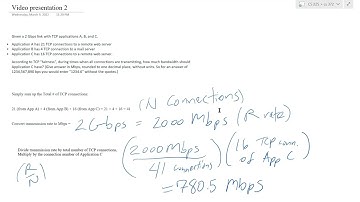 Video presentation 2
Wednesday, March 9, 2022 12:30 PM
Given a 2 Gbps link with TCP applications A, B, and C.
• Application A has 21 TCP connections to a remote web server
• Application B has 4 TCP connection to a mail server
• Application C has 16 TCP connections to a remote web server.
According to TCP "fairness", during times when all connections are transmitting, how much bandwidth should Application C have? (Give answer in Mbps, rounded to one decimal place, without units. So for an answer of 1234,567,890 bps you would enter "1234.6" without the quotes.)
Simply sum up the Total # of TCP connections
21 (from App A) + 4 (from App B) + 16 (from App C) = 21 + 4 + 16 = 41 (N connections)
Convert transmission rate to Mbps = 2 Gbps = 2000 Mbps (R rate)
Divide transmission rate by total number of TCP connections.
Multiply by the connection number of Application C
(R/N)
(2000 Mbps / 41 connections) (16 TCP conn. of App C)
= 780.5 Mbps